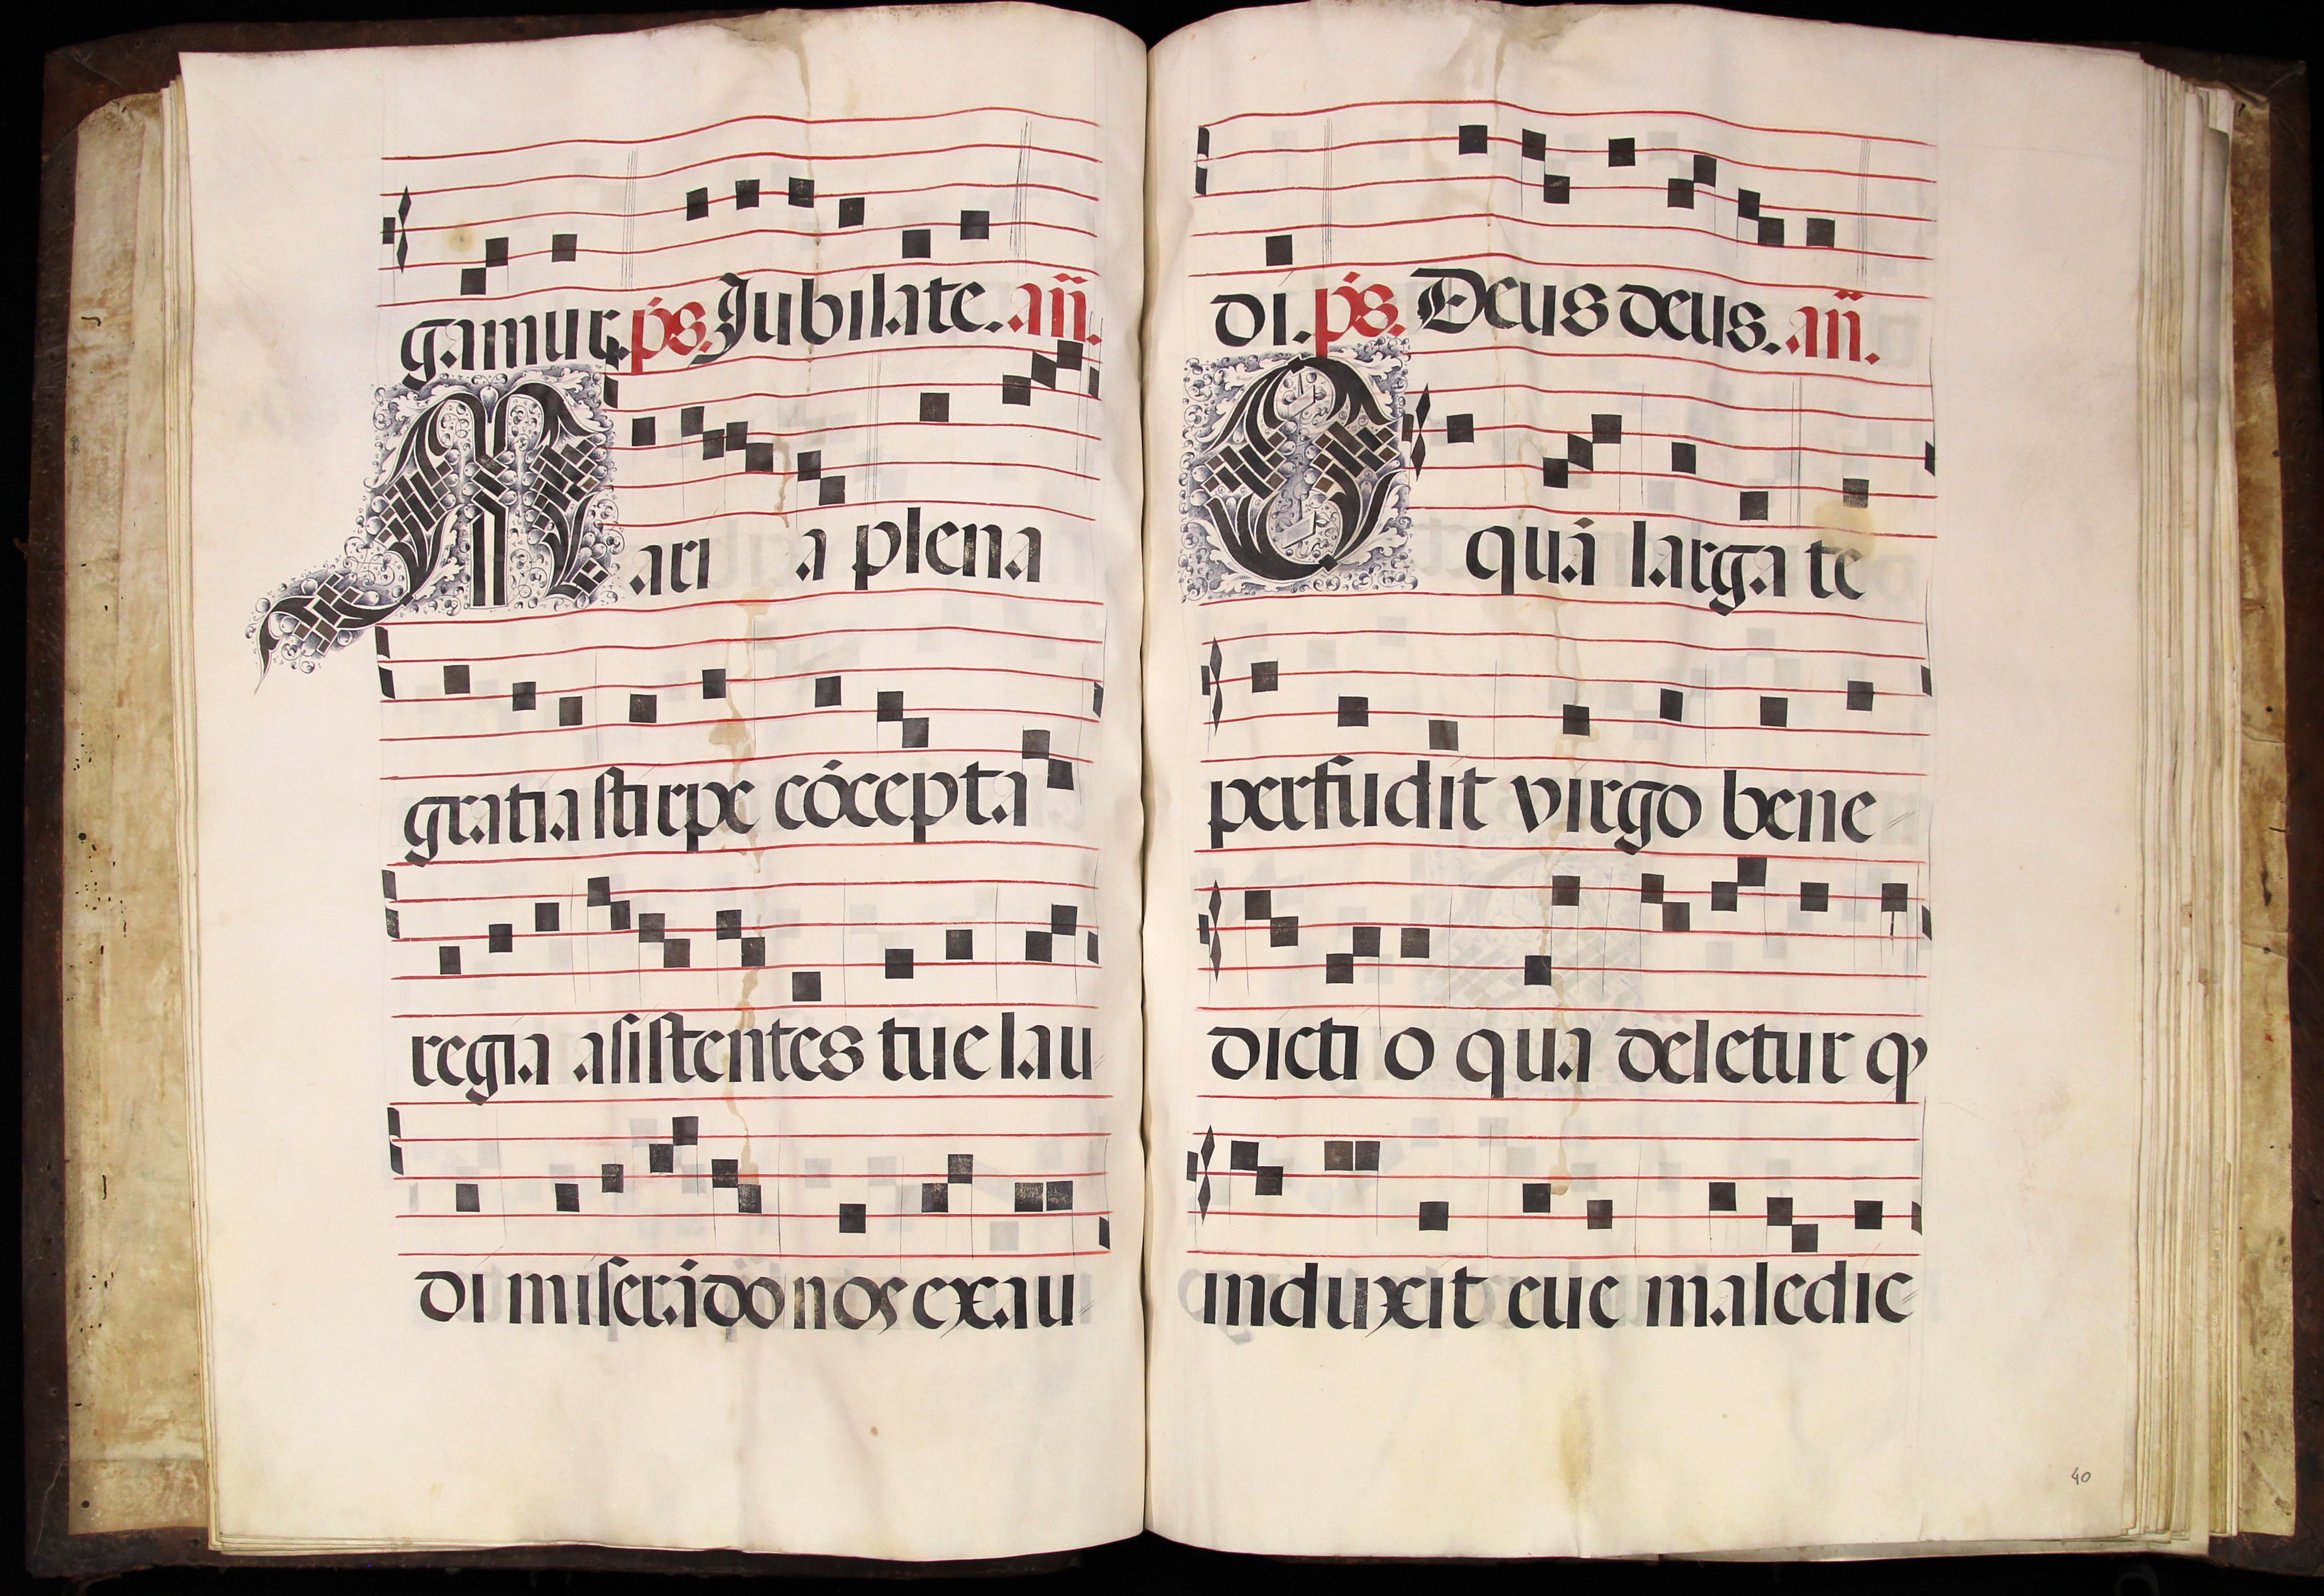 gamur. ps. Jubilate. añ.
Mari a plena
gratia stirpe cócepta
regia asistentes tue lau
di miserádo nos exau
di. ps. Deus deus. añ.
O quá larga te
perfudit virgo bene
dicti o qua deletur q
induxit eue maledic
40